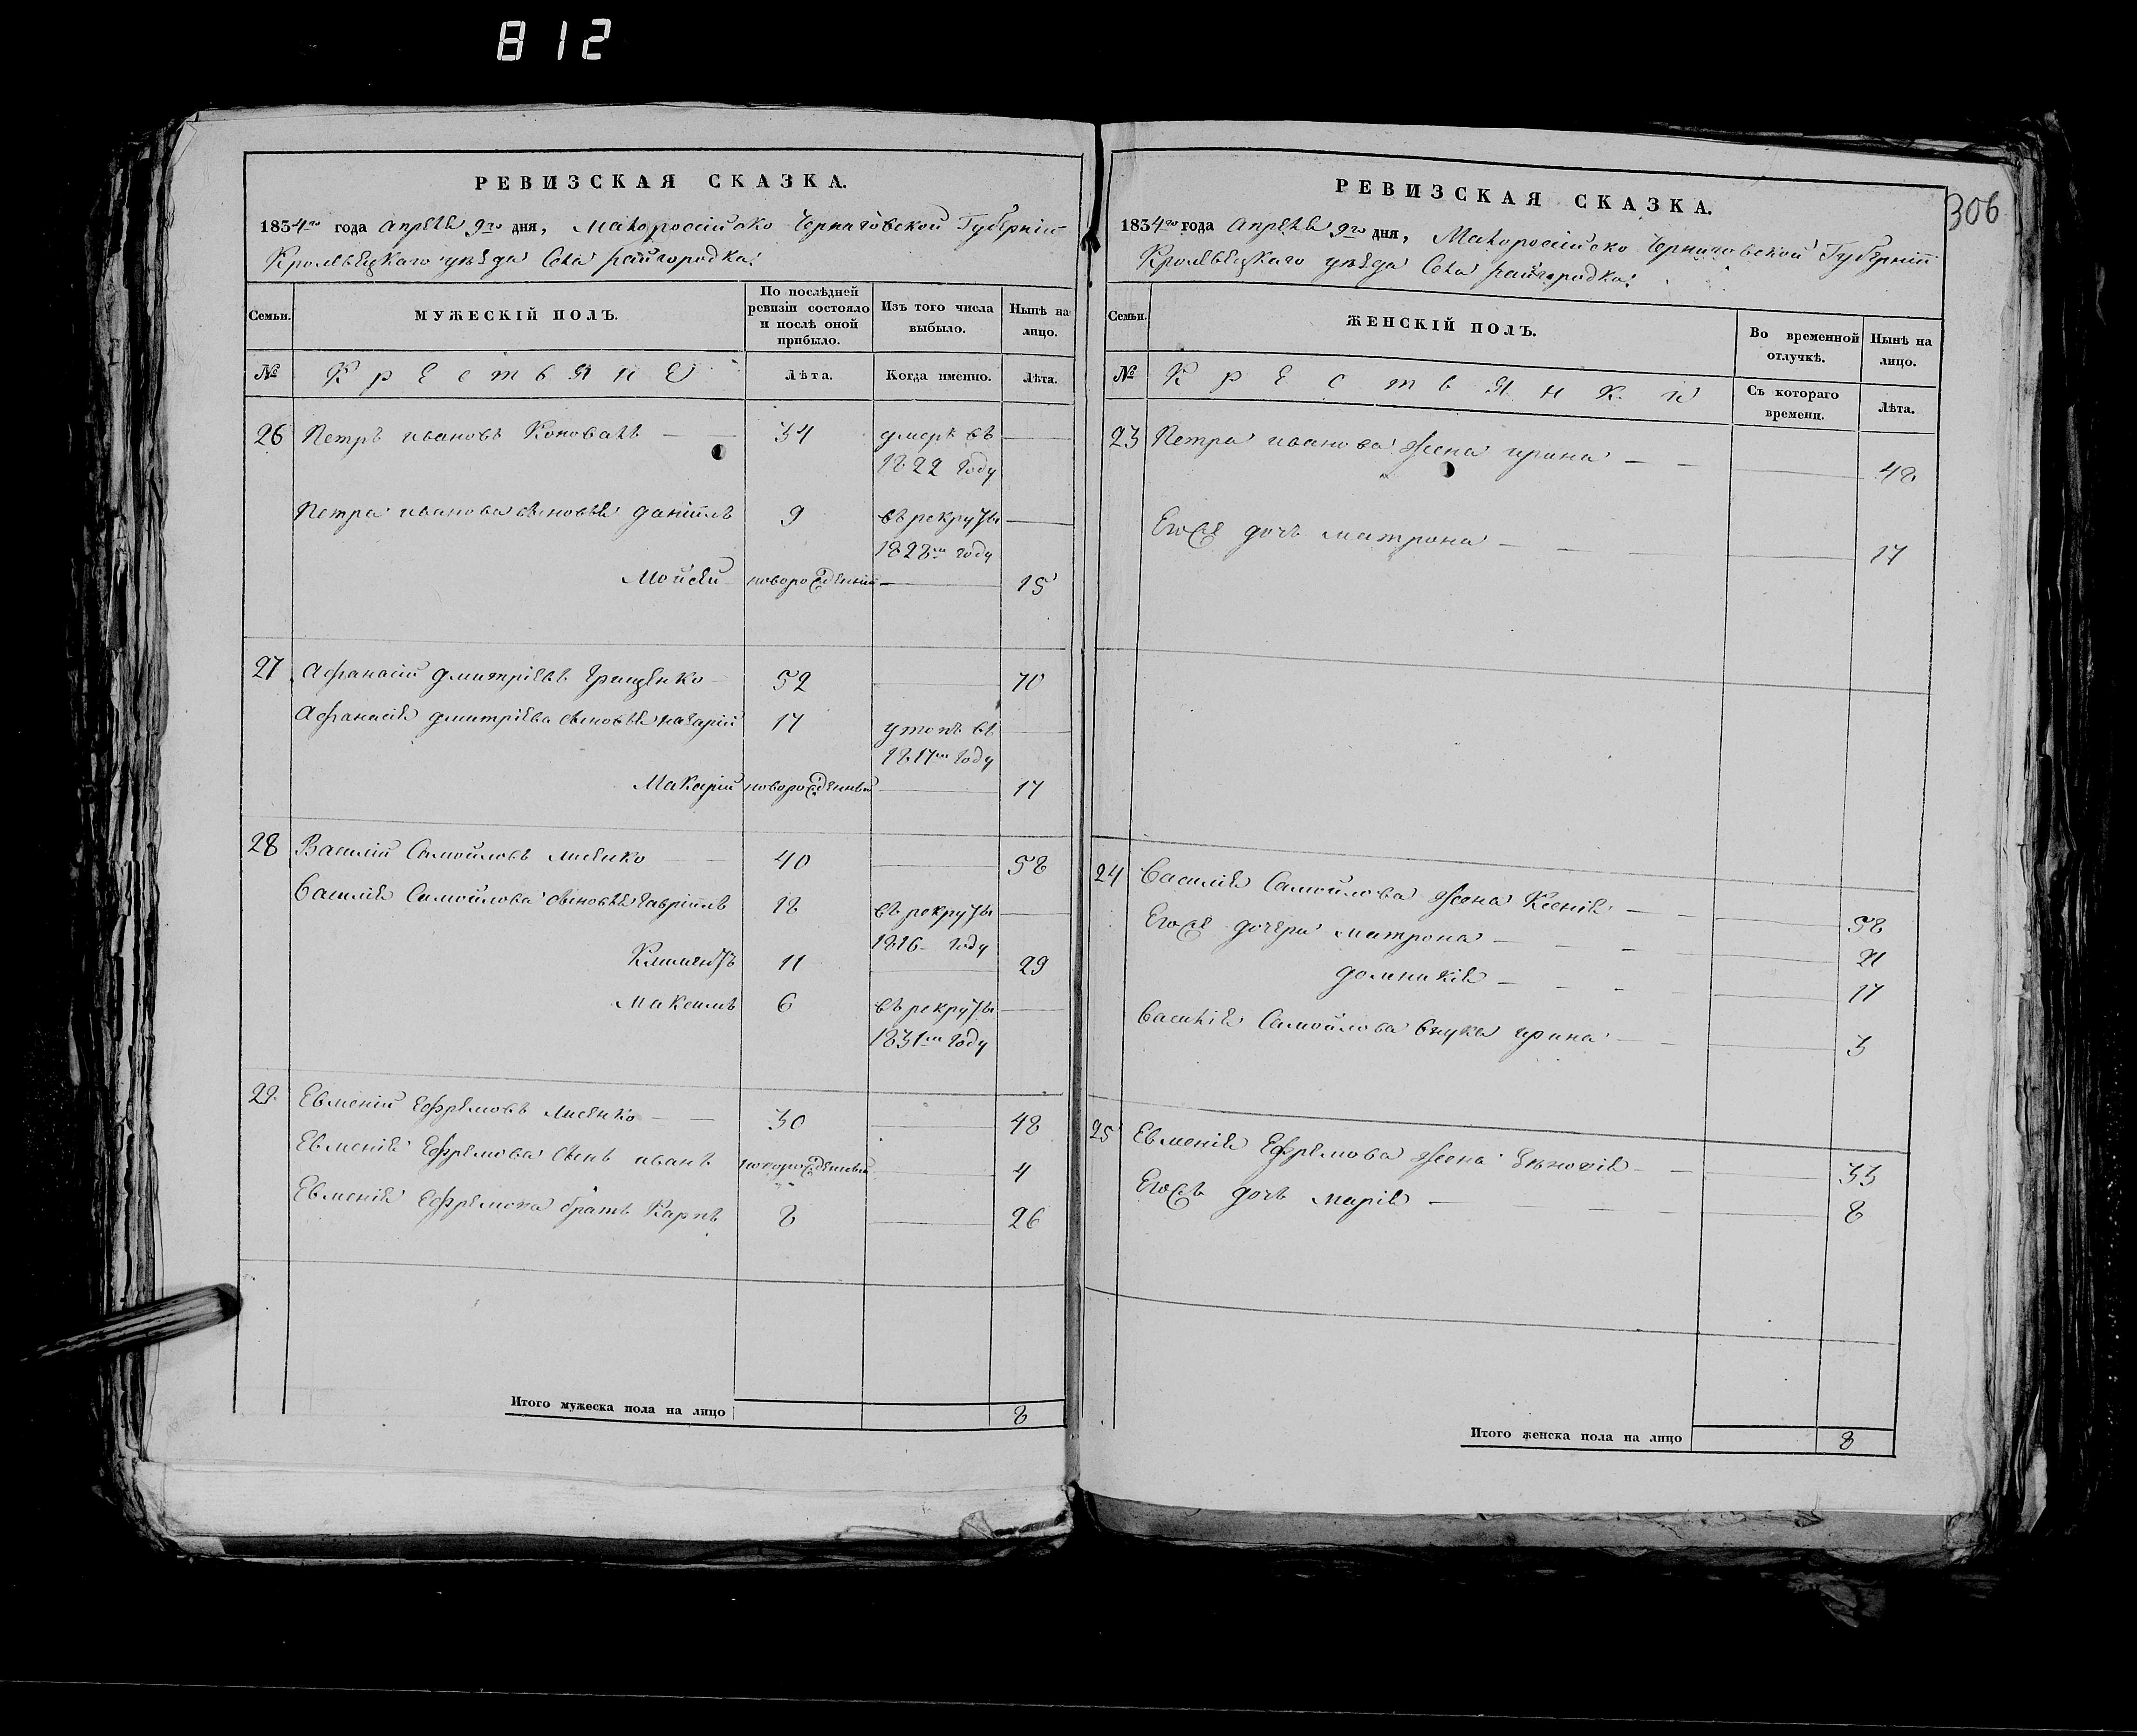 812
РЕВИЗСКАЯ СКАЗКА.
1834го года апреля 9го дня, Малоросийско Черниговской Губернии
Кролевецкаго уезда Села Райгородка:
Семьи.
МУЖЕСКІЙ ПОЛЪ.
По послѣдней ревизіи состояло и послѣ оной прибыло.
Изъ того числа выбыло.
Нынѣ на лицо.
№
Крестьяне
Лѣта.
Когда именно.
Лѣта.
26 Петръ ивановъ Коновалъ 34 умеръ въ
1822 году
Петра иванова сыновья даніилъ 9 въ рекруты
1828м году
Мойсей новорожденній 15
27 Афанасій дмитріевъ Грищенко 52 70
Афанасія дмитріева сыновья назарій 17 утопъ въ
1817м году
Макарій новорожденный 17
28 Василій Самойловъ лисенко 40 58
Василія Самойлова сыновья гавріилъ 18 въ рекруты
1816 году
Климентъ 11 29
Максимъ 6 въ рекруты
1831м году
29. Евменій Ефремовъ лисенко 30 48
Евменія Ефремова сынъ иванъ новорожденный 4
Евменія Ефремова братъ Карпъ 8 26
Итого мужеска пола на лицо 8
306
РЕВИЗСКАЯ СКАЗКА.
1834го года апреля 9го дня, Малоросийско Черниговской Губернии
Кролевецкаго уезда Села Райгородка:
Семьи.
ЖЕНСКІЙ ПОЛЪ.
Во временной отлучкѣ.
Нынѣ на лицо.
№
Крестьянки
Съ котораго времени.
Лѣта.
23 Петра иванова жена ирина 48
Егожъ дочь матрона 17
24 Василія Самойлова жена Ксенія 58
Егожъ дочери матрона 21
домникія 17
Василія Самойлова внука ирина 3
25 Евменія Ефремова жена Зѣновія 33
Егожъ дочь марія 8
Итого женска пола на лицо 8